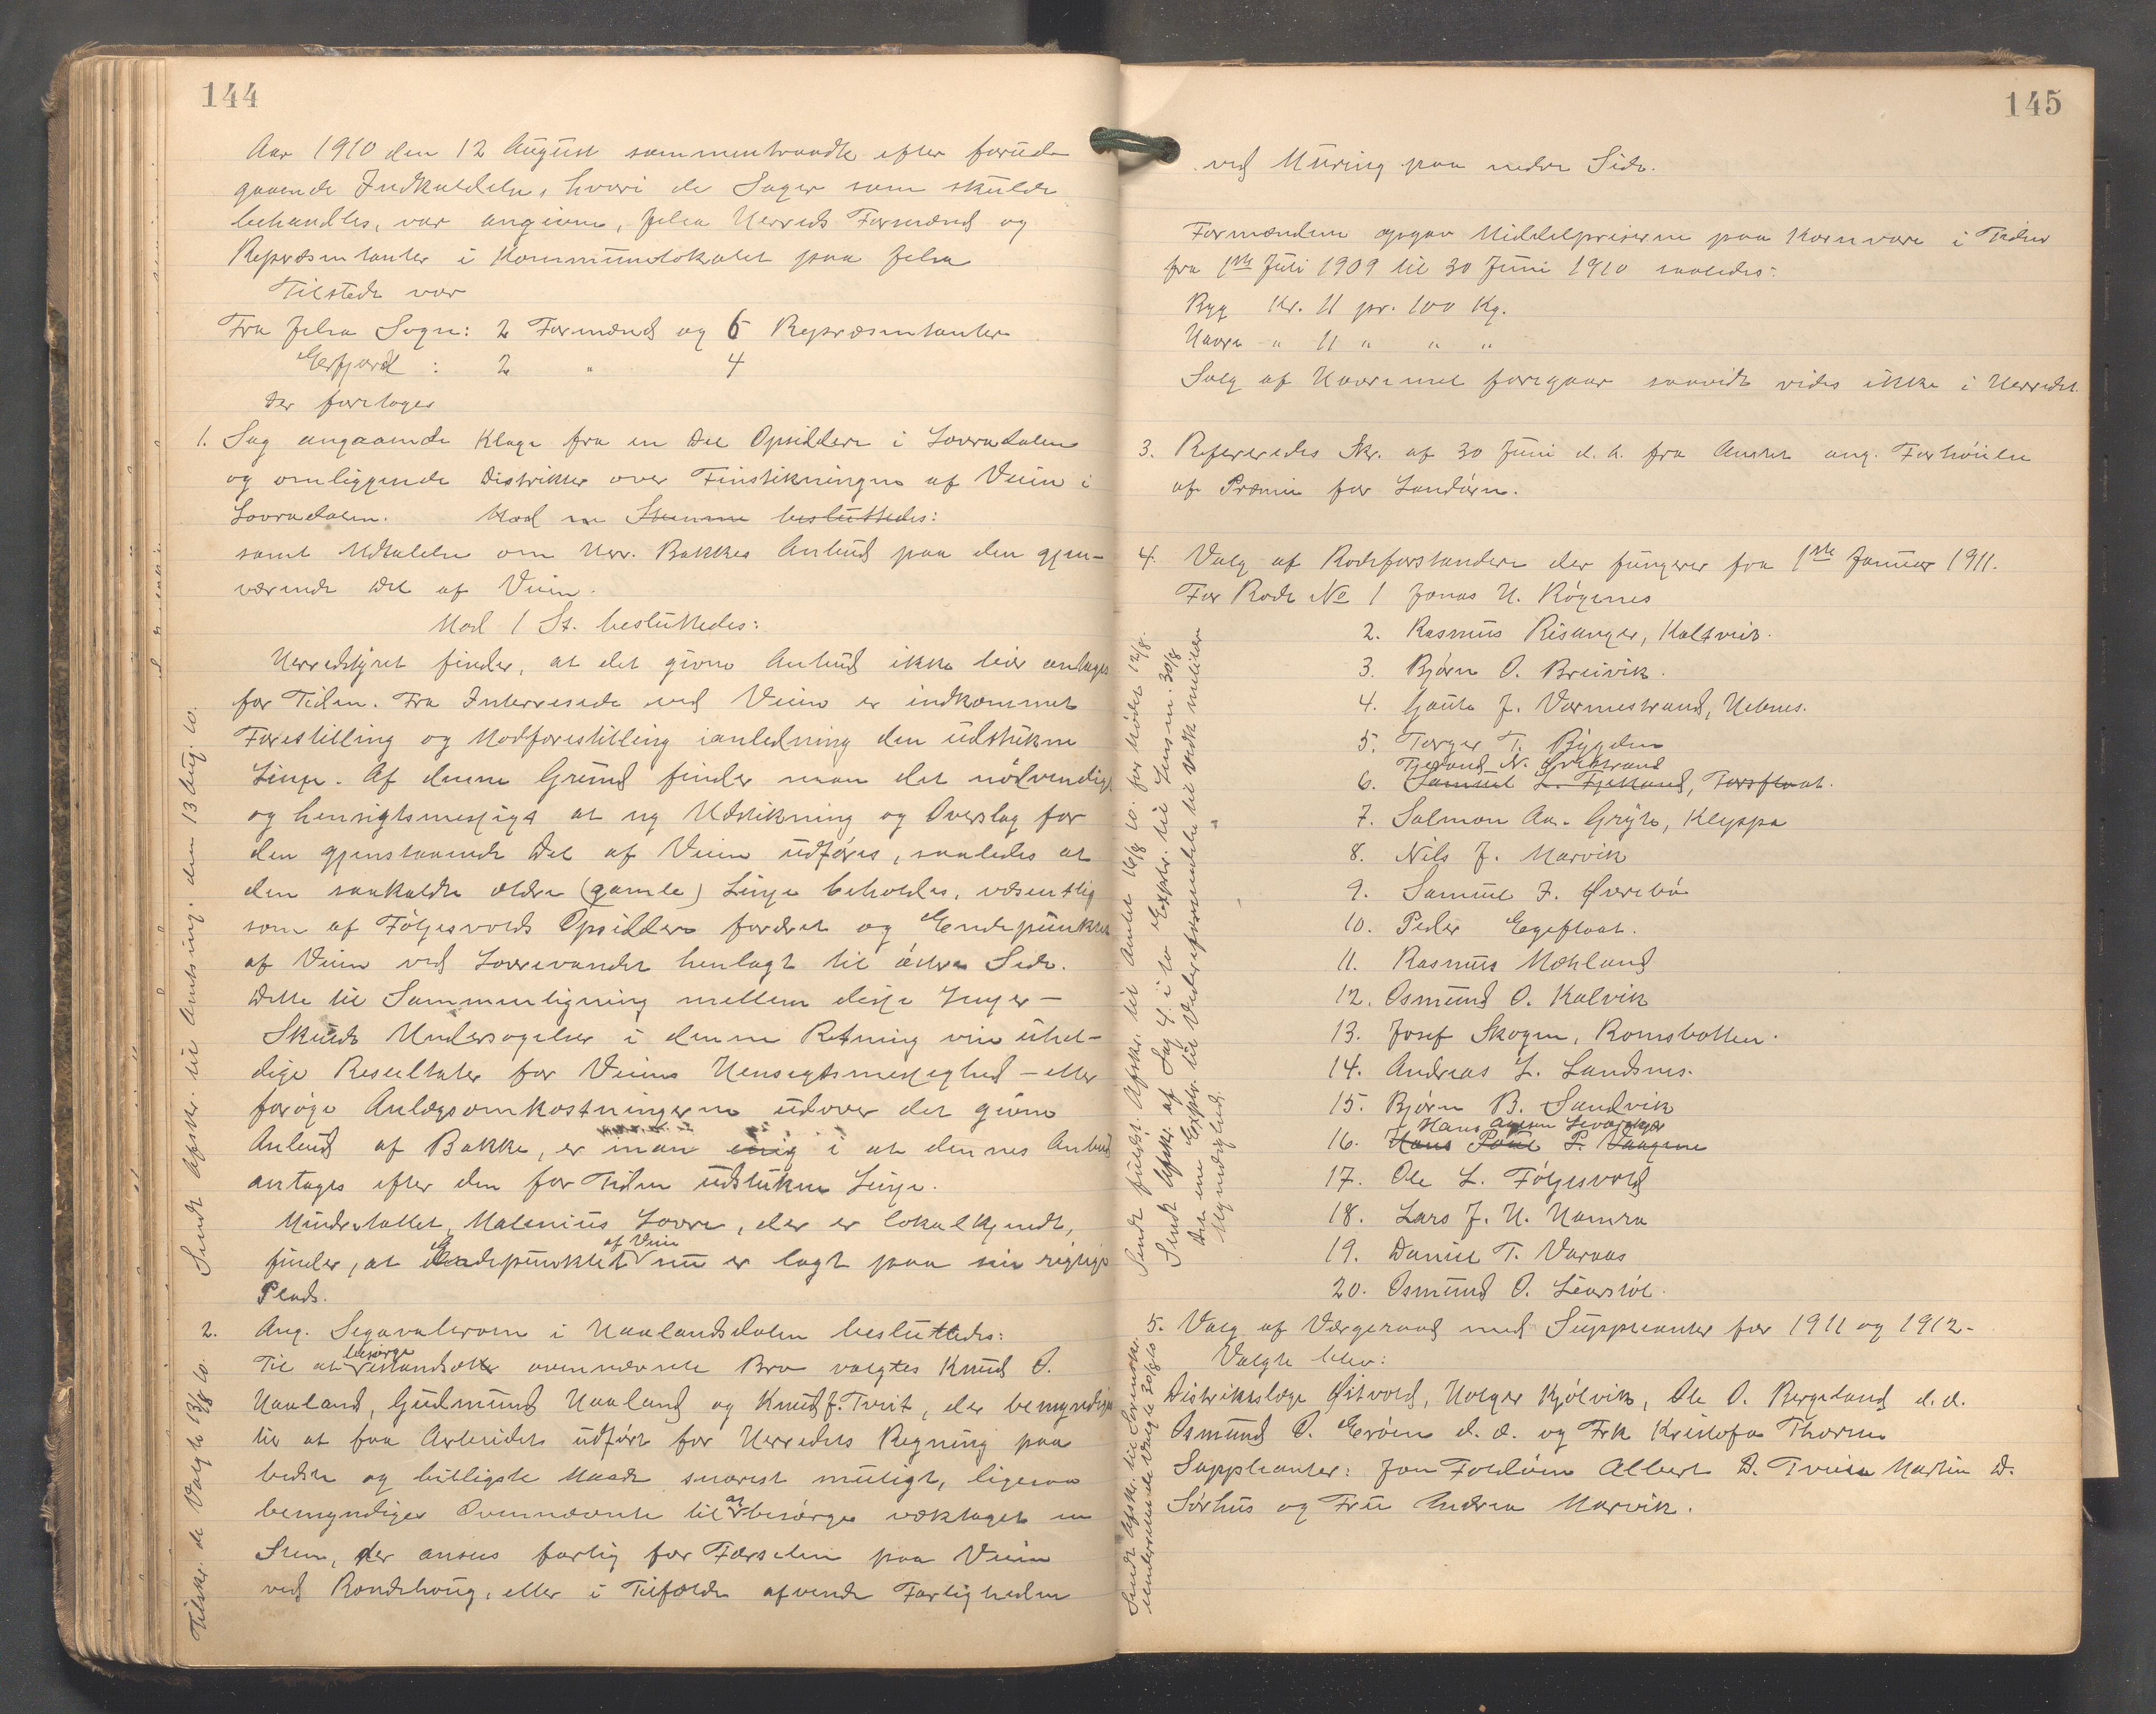 144
Aar 1910 den 12 August sammentraadte efter forud-
gaaende Indkaldelse, hvori de Sager som skulde
behandles, var angivne, Jelsa Herreds Formænd og
Repræsentanter i Kommunelokalet paa Jelsa
Tilstede var
Fra Jelsa Sogn: 2 Formænd og 6 Repræsentanter
Erfjord : 2 " 4
Der foretoges
1. Sag angaaende Klage fra en Del Opsiddere i Lovradalen
og omliggende Distrikter over Finstikningen af Veien i
Lovradalen. Mod en Stemme besluttedes:
samt Udtalelse om Herr. Bakkes Anbud paa den gjen-
værende Del af Veien.
Mod 1 St. besluttedes:
Herredstyret finder, at det givne Anbud ikke bør antages
for Tiden. Fra Interresede ved Veien er indkommet
Forestilling og Modforestilling ianledning den udstukne
Linje. Af denne Grund finder man det nødvendigt
og hensigtsmessigt at ny Udstikning og Overslag for
den gjenstaaende Del af Veien udføres, saaledes at
den saakaldte ældre (gamle) Linje beholdes, væsentlig
som af Følgesvolds Opsiddere fordret og Endepunktet
af Veien ved Lovrevandet henlagt til østre Side.
Dette til Sammenligning mellem disse Linjer –
Skulde Undersøgelser i denne Retning vise uhel-
dige Resultater for Veiens Hensigtsmessighed – eller
forøge Anlægsomkostningerne udover det givne
Anbud af Bakke, er man enig i at dennes Anbud
antages efter den for Tiden udstukne Linje.
Mindretallet, Matenius Lovre, der er lokalkjendt,
af Veien
finder, at Endepunktet nu er lagt paa sin rigtige
Plads.
2. Ang. Segavalsroen i Haalandsdalen besluttedes:
besørge
Til at istandsatte ovennævnte Bro valgtes Knud O.
Haaland, Gudmund Haaland og Knud J. Tveit, der bemyndiges
til at faa Arbeidet udført for Herredets Regning paa
bedste og billigste Maade snarest muligt, ligesaa
bemyndiges Ovennævnte til at besørge væktaget en
Sten, der ansees farlig for Færselen paa Veien
ved Rondehoug, eller i Tilfælde afvende Farligheden
Sendt Afskr. til Amtsing. den 13 Aug. 10.
Tilskr. de Valgte 13/8 10.
145
ved Muring paa nedre Side.
Formændene opgav Middelpriserne paa Kornvare i Tiden
fra 1ste Juli 1909 til 30 Juni 1910 saaledes:
Byg Kr. 11 pr. 100 Kg.
Havre " 11 " " "
Salg af Havremel foregaar saavidt vides ikke i Herredet.
3. Refereredes Skr. af 30 Juni d. A. fra Amtet ang. Forhøielse
af Præmie for Landørn.
4. Valg af Rodeforstandere der fungerer fra 1ste Januar 1911.
For Rode No 1 Jonas H. Røgenes
2. Rasmus Risanger, Kaltveit.
3. Bjørn O. Breivik.
4. Gaute J. Varmestrand, Hebnes.
5. Torger T. Bygden
Tjerand N. Grøtstrand
6. Samuel L. Fjetland, Torsfloat.
7. Salmon Aa. Gryte, Kleppa
8. Nils J. Marvik
9. Samuel J. Øvrebø
10. Peder Egefloat.
11. Rasmus Mæhland
12. Osmund O. Kalvik
13. Josef Skogen, Romsbotten.
14. Andreas L. Landsnes.
15. Bjørn B. Sandvik
16. Hans Poul P. Vaagene
17. Ole L. Følgesvold
18. Lars J. H. Hamra
19. Daniel T. Varaas
20. Osmund O. Livastøl.
5. Valg af Værgeraad med Suppleanter for 1911 og 1912.
Valgte blev:
Distriktslæge Øitvold, Holger Kjølvik, Ole O. Bergeland d. d.
Osmund O. Erøen d. d. og Frk Kristofa Thorsen
Suppleanter: Jon Foldøen Albert D. Tveita Martin D.
Sørhus og Fru Andrea Marvik.
Sendt fuldst. Afskr. til Amtet 16/8 10. for Mødet 12/8.
Sendt Afskr. af Sag 4. i to Expl. til Lensm. 30/8